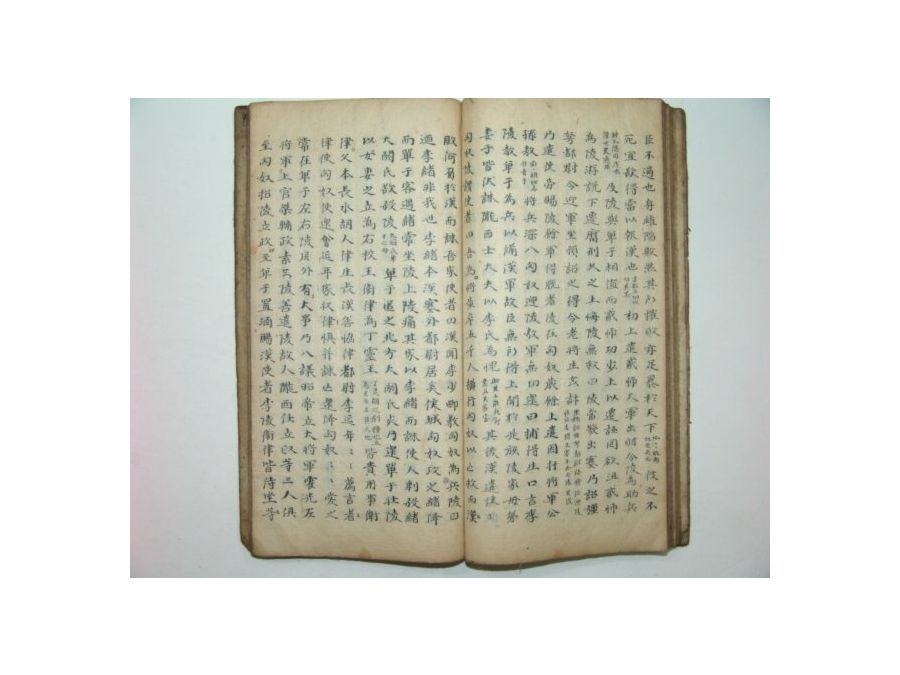 臣不過也身雖陷敗然其所摧敗亦足暴於天下彼之不
死宜欲得當以報漢也初上遣貳師大軍出財令陵爲助兵
及陵與單于相值而貳師功少上以遷誣罔欲沮貳師
爲陵游説下遷腐刑久之上悔陵無救曰陵當發出塞乃詔強
弩都尉令迎軍坐預詔之得令老將生姦詐
乃遣使勞賜陵餘軍得脫者陵在匈奴歲餘上遣因杅將軍公
孫敖將兵深入匈奴迎陵敖軍無功還曰捕得生口言李
陵教單于爲兵以備漢軍故臣無所得上聞於是族陵家母弟
妻子皆伏誅隴西士大夫以李氏爲愧其後漢遣使
匈奴陵謂使者曰吾爲將步卒五千人橫行匈奴以亡救而
敗何負於漢而誅吾家使者曰漢聞李少卿教匈奴爲兵陵曰
迺李緒非我也李緒本漢塞外都尉居奚侯城匈奴攻之緒降
而單于客遇緒常坐陵上陵痛其家以李緒而誅使人刺殺緒
大閼氏欲殺陵單于匿之北方大閼氏死乃還單于壯陵
以女妻之立爲右校王衛律爲丁靈王皆貴用事衛
律父本長水胡人律生長漢善協律都尉李延年〻〻薦言
律使匈奴使還會延年家收律懼并誅亡還降匈奴〻〻愛之
常在單于左右陵居外有大事乃入議昭帝立大將軍霍光左
將軍上官桀輔政素與陵善遣陵故人隴西任立政等三人俱
至匈奴招陵立政至單于置酒賜漢使者李陵衛律皆侍坐〻等